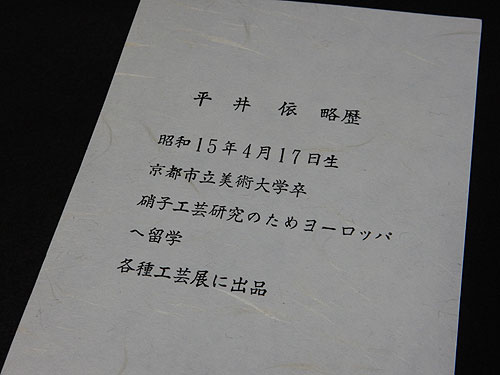 平井 依 略歴
昭和15年4月17日生
京都市立美術大学卒
硝子工芸研究のためヨーロッパ
へ留学
各種工芸展に出品